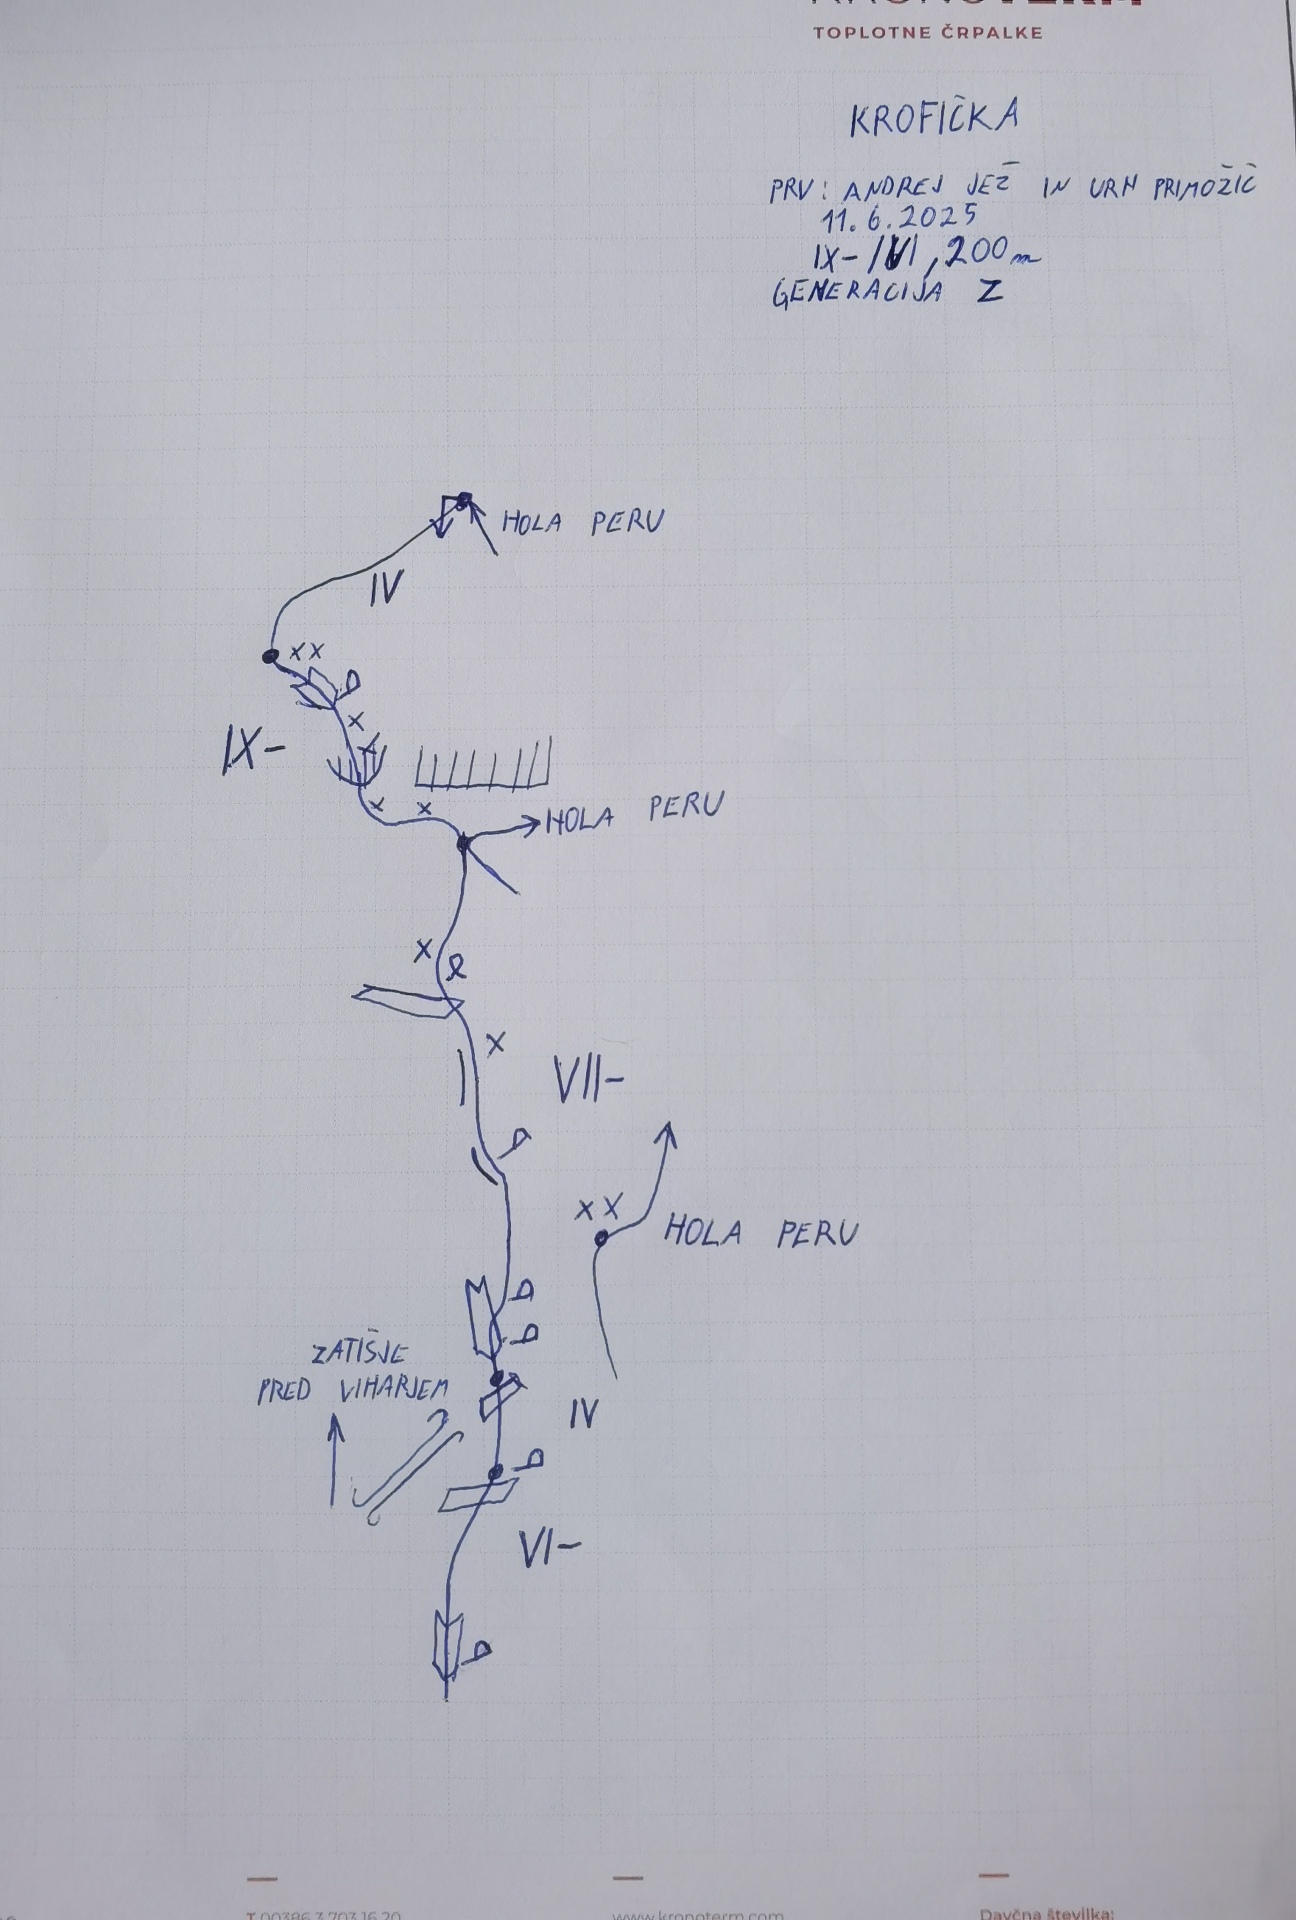 TOPLOTNE ČRPALKE
KROFIČKA
PRV: ANDREJ JEŽ IN URH PRIMOŽIČ
11.6.2025
IX-/VI, 200m
GENERACIJA Z
HOLA PERU
IV
XX
X
IX-
X
X X
HOLA PERU
X
X
VII-
XX
HOLA PERU
ZATIŠJE
PRED VIHARJEM
IV
VI-
T 00386 3 703 16 20
www.kronoterm.com
Davčna številka: